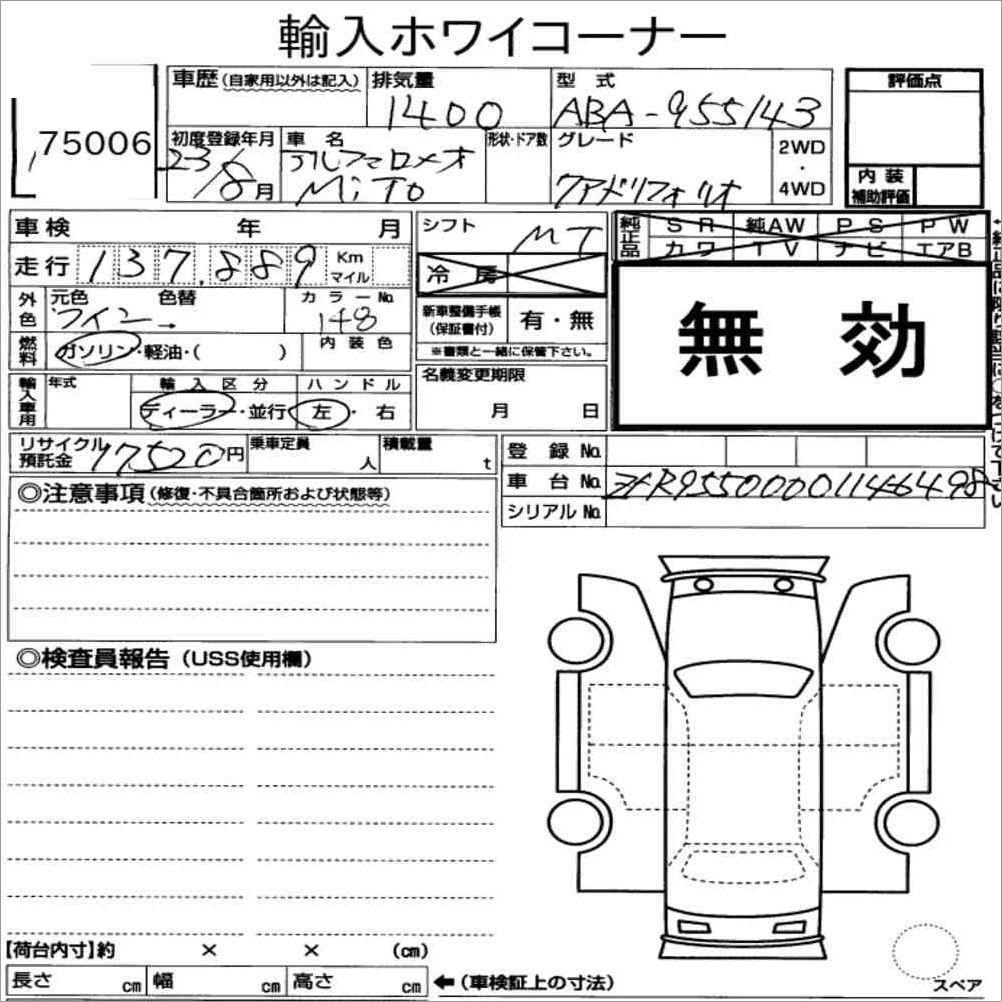 輸入ホワイコーナー
75006
車歴(自家用以外は記入) 排気量 型式 評価点
1400 ABA-955143
初度登録年月 車名 形状・ドア数 グレード 2WD・4WD
23/8月 アルファロメオ MiTo クアドリフォリオ
内装補助評価
車検 年 月 シフト MT
純正品 SR 純AW PS PW
カワ TV ナビ エアB
走行 137,889 Km マイル 冷房
無効
外色 元色 色替 カラーNo.
ワイン 148
新車整備手帳(保証書付) 有・無
燃料 ガソリン・軽油・( ) 内装色
※書類と一緒に保管下さい。
輸入車用 年式 輸入区分 ハンドル 名義変更期限
ディーラー・並行 左・右 月 日
リサイクル預託金 17520円 乗車定員 人 積載量 t
登録No.
車台No. ZAR955000001146498
シリアルNo.
◎注意事項(修復・不具合箇所および状態等)
◎検査員報告(USS使用欄)
【荷台内寸】約 × × (cm)
長さ cm 幅 cm 高さ cm ←(車検証上の寸法)
スペア